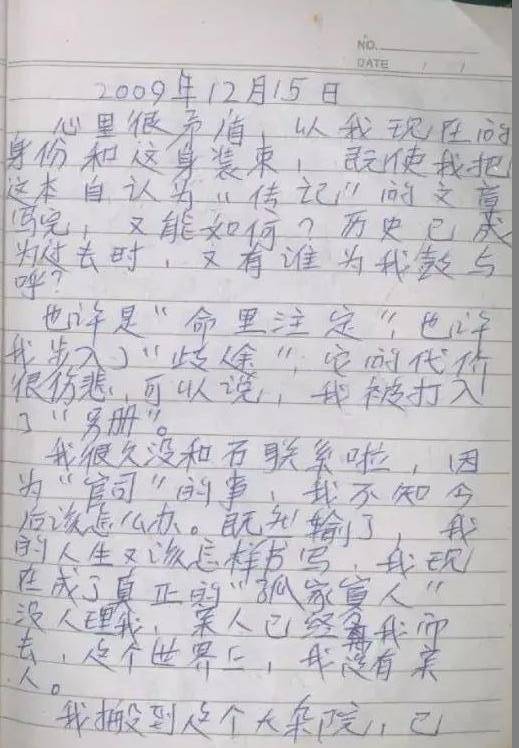 NO.
DATE / /
2009年12月15日
心里很矛盾，以我现在的
身份和这身装束，既使我把
这本自认为“传记”的文章
写完，又能如何？历史已成
为过去时，又有谁为我鼓与
呼？
也许是“命里注定”，也许
我步入了“歧途”，它的代价
很伤悲，可以说，我被打入
了“另册”。
我很久没和石联系啦，因
为“官司”的事，我不知今
后该怎么办。既然输了，我
的人生又该怎样书写，我现
在成了真正的“孤家寡人”
没人理我，某人已经弃我而
去，这个世界上，我恨有某
人。
我搬到这个大杂院，已